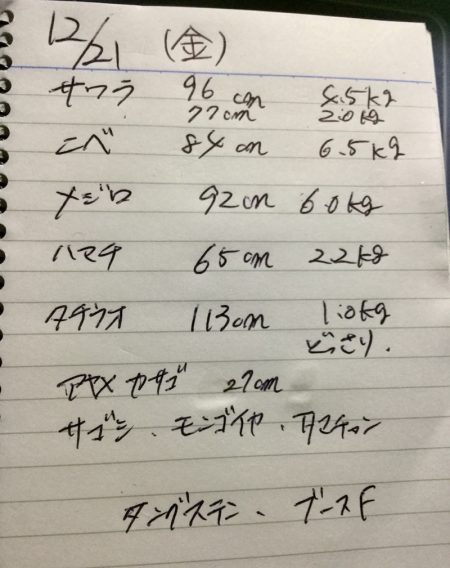 12/21 (金)
サワラ 96cm 4.5kg
77cm 2.0kg
ニベ 84cm 6.5kg
メジロ 92cm 6.0kg
ハマチ 65cm 2.2kg
タチウオ 113cm 1.0kg
どっさり.
アヤメカサゴ 27cm
サゴシ、モンゴイカ、
タングステン、ブースF